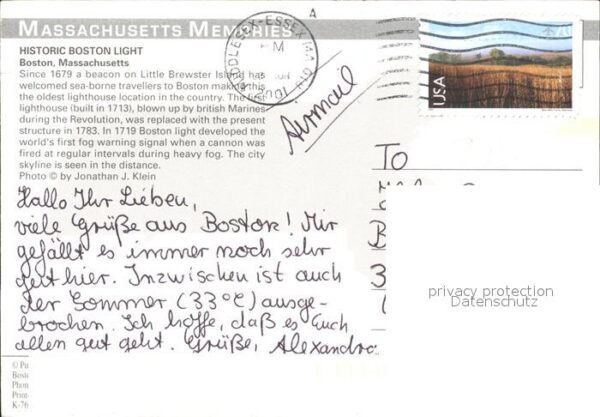 MASSACHUSETTS MEMORIES
HISTORIC BOSTON LIGHT
Boston, Massachusetts
Since 1679 a beacon on Little Brewster Island has
welcomed sea-borne travellers to Boston making this
the oldest lighthouse location in the country. The first
lighthouse (built in 1713), blown up by british Marines
during the Revolution, was replaced with the present
structure in 1783. In 1719 Boston light developed the
world's first fog warning signal when a cannon was
fired at regular intervals during heavy fog. The city
skyline is seen in the distance.
Photo © by Jonathan J. Klein
MIDDLESEX-ESSEX MA
USA
Airmail
TO
Hallo Ihr Lieben,
viele Grüße aus Boston! Mir
gefällt es immer noch sehr
gut hier. Inzwischen ist auch
der Sommer (33°C) ausge-
brochen. Ich hoffe, daß es Euch
allen gut geht. Grüße, Alexandra
privacy protection
Datenschutz
K-76